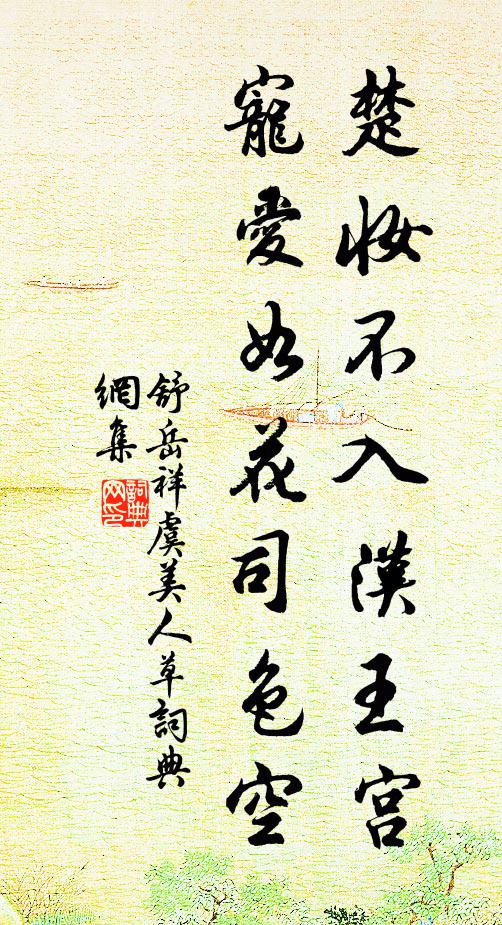 楚妝不入漢王宮
寵愛如花司色空
舒岳祥虞美人草詞典
網集
詞典網印